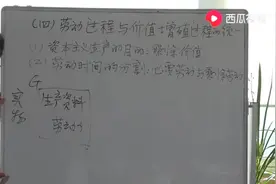 西瓜视频
(四)劳动过程与价值增殖过程的统一
(1)资本主义生产的目的:剩余价值
(2)劳动时间的分割:必要劳动与剩余劳动
G
生产资料
劳动力